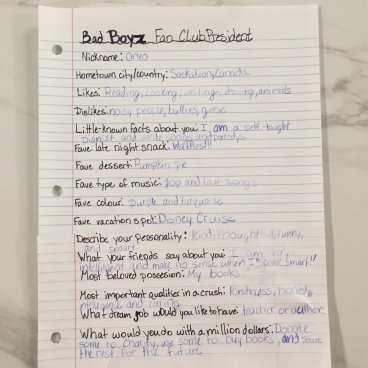 Bad Boyz Fan Club President
Nickname: Oreo
Hometown city/country: Saskatoon, Canada
Likes: Reading, cooking, writing, drawing, animals
Dislikes: noisy people, bullies, geese
Little-known facts about you: I am a self-taught
pianist and write songs and parodys
Fave late night snack: Waffles!!!
Fave dessert: Pumpkin pie
Fave type of music: pop and love songs
Fave colour: purple and turquoise
Fave vacation spot: Disney Cruise
Describe your personality: Kind, thoughtful, funny,
and smart
What your friends say about you: I am very
intelligent and make no sense when I "speak smart"
Most beloved possesion: My books
Most important qualities in a crush: Kindness, honesty,
intelegence and caring
What dream job would you like to have: teacher or author
What would you do with a million dollars: Donate
some to charity, use some to buy books, and save
the rest for the future